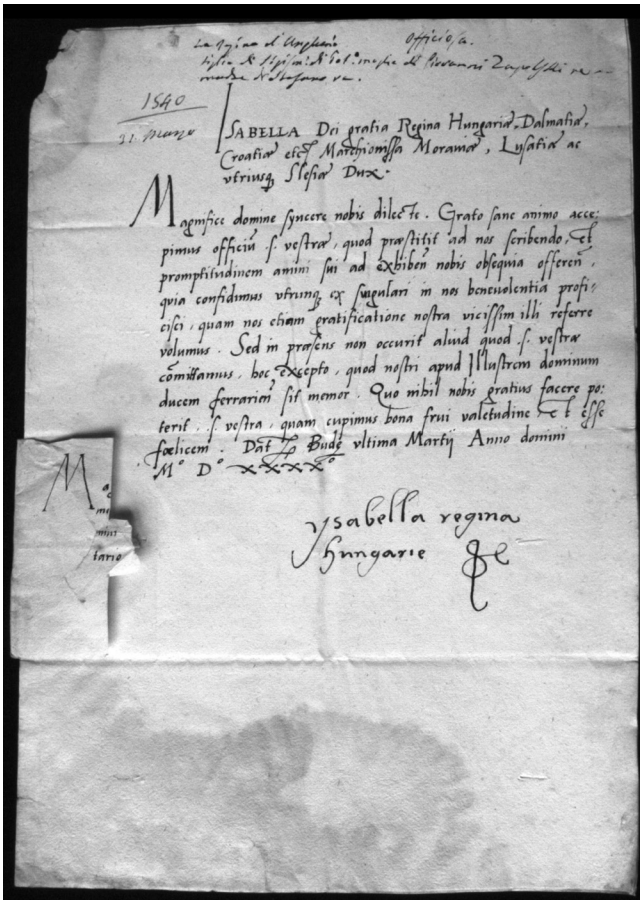 La Regina d' Ungheria Officiosa.
figlia di Sigism: di Pol: moglie di Giovanni Zapolski e
madre di Stefano
1540
31. Marzo
ISABELLA Dei gratia Regina Hungariæ, Dalmatiæ,
Croatiæ etc. Marchionissa Moraviæ, Lusatiæ ac
vtriusq Slesiæ Dux.
Magnifice domine syncere nobis dilecte. Grato sane animo acce:
pimus officiū .s. vestræ, quod præstitit ad nos scribendo, et
promptitudinem animi sui ad exhiben nobis obsequia offeren,
quia confidimus vtrunq ex singulari in nos beneuolentia profi-
cisci, quam nos etiam gratificatione nostra vicissim illi referre
volumus. Sed in præsens non occurit aliud quod .s. vestræ
cōmittamus, hoc excepto, quod nostri apud Illustrem dominum
ducem ferrarien sit memor. Quo nihil nobis gratius facere po:
terit .s. vestra, quam cupimus bona frui valetudine et esse
fœlicem. Dat Budę vltima Martij Anno domini
M° D° xxxx°
Ysabella regina
hungarie
Mag
mi
mius
tario